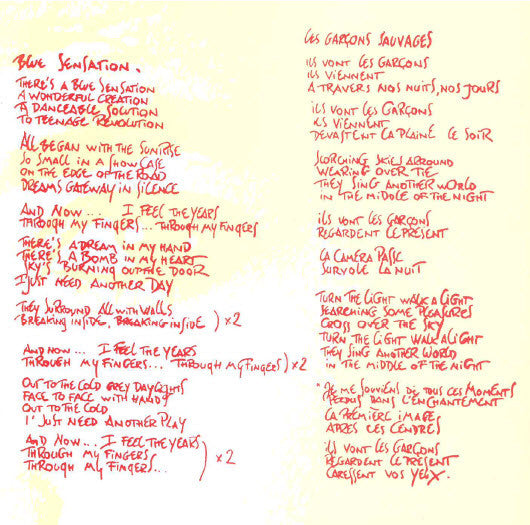 BLUE SENSATION.
THERE'S A BLUE SENSATION
A WONDERFUL CREATION
A DANCEABLE SOLUTION
TO TEENAGE REVOLUTION
ALL BEGAN WITH THE SUNRISE
SO SMALL IN A SHOWCASE
ON THE EDGE OF THE ROAD
DREAMS GATEWAY IN SILENCE
AND NOW... I FEEL THE YEARS
THROUGH MY FINGERS... THROUGH MY FINGERS
THERE'S A DREAM IN MY HAND
THERE'S A BOMB IN MY HEART
SKY'S BURNING OUT THE DOOR
I JUST NEED ANOTHER DAY
THEY SURROUND ALL WITH WALLS
BREAKING INSIDE, BREAKING INSIDE ) x 2
AND NOW... I FEEL THE YEARS
THROUGH MY FINGERS... THROUGH MY FINGERS ) x 2
OUT TO THE COLD GREY DAYLIGHTS
FACE TO FACE WITH HANDS
OUT TO THE COLD
I' JUST NEED ANOTHER PLAY
AND NOW... I FEEL THE YEARS
THROUGH MY FINGERS ) x 2
THROUGH MY FINGERS...
LES GARÇONS SAUVAGES
ILS VONT LES GARÇONS
ILS VIENNENT
A TRAVERS NOS NUITS, NOS JOURS
ILS VONT LES GARÇONS
ILS VIENNENT
DEVASTENT LA PLAINE LE SOIR
SCORCHING SKIES ARROUND
WEARING OVER TIE
THEY SING ANOTHER WORLD
IN THE MIDDLE OF THE NIGHT
ILS VONT LES GARÇONS
REGARDENT LE PRESENT
LA CAMÉRA PASSE
SURVOLE LA NUIT
TURN THE LIGHT WALK A LIGHT
SEARCHING SOME PLEASURES
CROSS OVER THE SKY
TURN THE LIGHT WALK A LIGHT
THEY SING ANOTHER WORLD
IN THE MIDDLE OF THE NIGHT
"JE ME SOUVIENS DE TOUS CES MOMENTS
PERDUS DANS L'ENCHANTEMENT
LA PREMIÈRE IMAGE
APRES LES CENDRES
ILS VONT LES GARÇONS
REGARDENT LE PRESENT
CARESSENT VOS YEUX.